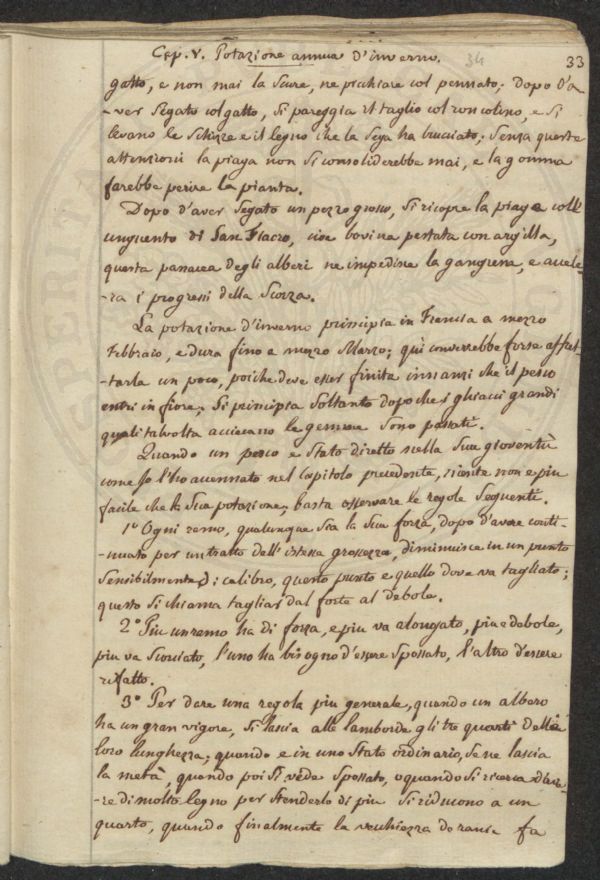 Cap. V. Potazione annua d'inverno. 34 33
gatto, e non mai la scure, ne picchiare col pennato; dopo d'a
-ver segato col gatto, si pareggia il taglio col roncolino, e si
levano le schizze e il legno che la sega ha bruciato; senza queste
attenzioni la piaga non si consoliderebbe mai, e la gomma
farebbe perire la pianta.
Dopo d'aver segato un pezzo grosso, si ricopre la piaga coll'
unguento di San Fiacro, cioe bovina pestata con argilla,
questa panacea degli alberi ne impedisce la gangrena, e accele-
-ra i progressi della scorza.
La potazione d'inverno principia in Francia a mezzo
Febbraio, e dura fino a mezzo Marzo; quì converrebbe forse affret-
-tarla un poco, poiche deve esser finita innanzi che il pesco
entri in fiore; si principia soltanto dopo che i ghiacci grandi
quali talvolta acciecano le gemme sono passati.
Quando un pesco e stato diretto nella sua gioventù
come Jo l'ho accennato nel Capitolo precedente, niente non e piu
facile che la sua potazione, basta osservare le regole seguenti.
1º Ogni remo, qualunque sia la sua forza, dopo d'avere conti-
-nuato per un tratto dell'istessa grossezza, diminuisce in un punto
sensibilmente di calibro, questo punto e quello dove va tagliato;
questo si chiama tagliar dal forte al debole.
2º Piu un remo ha di forza, e piu va alongato, piu e debole,
piu va scorciato, l'uno ha bisogno d'essere spossato, l'altro d'essere
rifatto.
3º Per dare una regola piu generale, quando un albero
ha un gran vigore, si lascia alle lamborde gli tre quarti della
loro lunghezza; quando e in uno stato ordinario, se ne lascia
la metà, quando poi si vede spossato, o quando si ricerca d'ave-
-re di molto legno per stenderlo di piu si riducono a un
quarto, quando finalmente la vecchiezza de rami fa